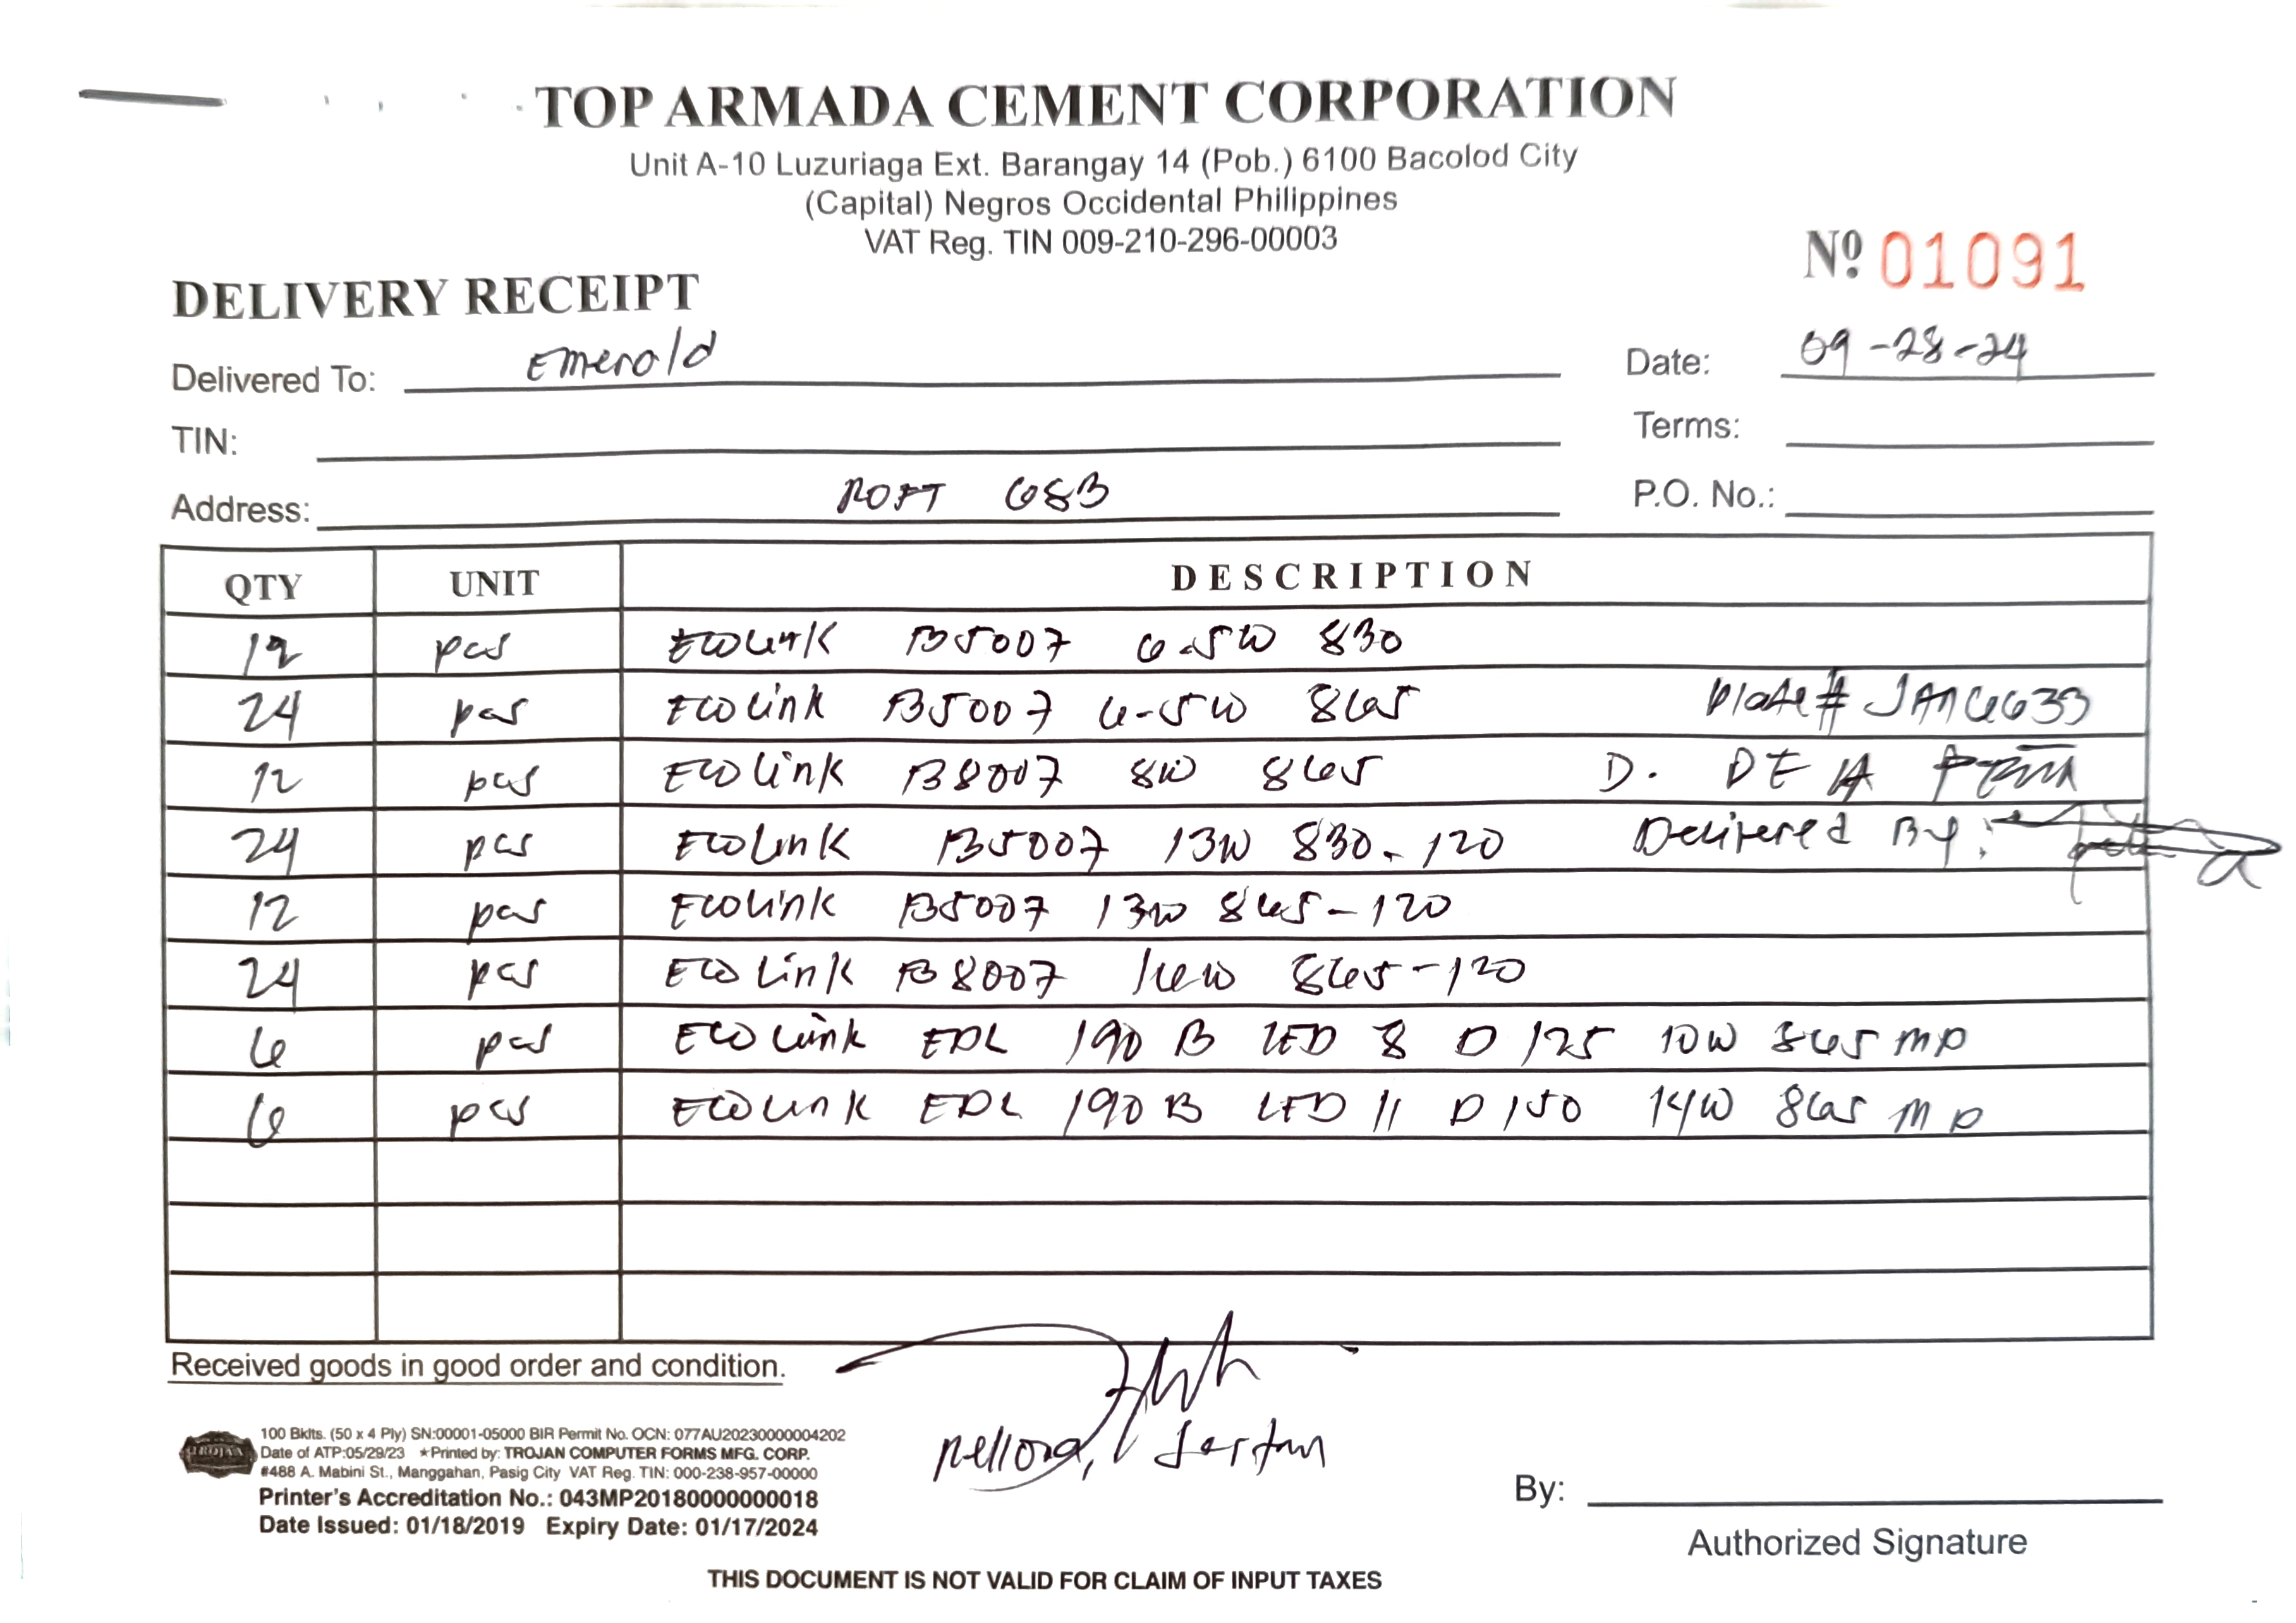 TOP ARMADA CEMENT CORPORATION
Unit A-10 Luzuriaga Ext. Barangay 14 (Pob.) 6100 Bacolod City
(Capital) Negros Occidental Philippines
VAT Reg. TIN 009-210-296-00003
Nº 01091
DELIVERY RECEIPT
Delivered To: Emerald Date: 09-28-24
TIN: Terms:
Address: P.O. No.:
QTY UNIT DESCRIPTION
12 pcs Ecolink B5007 6.5W 830
24 pcs Ecolink B5007 6-5W 865 Plate#
12 pcs Ecolink B8007 8W 865 D.
24 pcs Ecolink B5007 13W 830-120 Delivered By:
12 pcs Ecolink B5007 13W 865-120
24 pcs Ecolink B8007 16W 865-120
6 pcs Ecolink EDL 190 B LED 8 D 125 10W 865 MP
6 pcs Ecolink EDL 190 B LED 11 D 150 14W 865 MP
Received goods in good order and condition.
TROJAN
100 Bklts. (50 x 4 Ply) SN:00001-05000 BIR Permit No. OCN: 077AU20230000004202
Date of ATP:05/29/23 ★Printed by: TROJAN COMPUTER FORMS MFG. CORP.
#488 A. Mabini St., Manggahan, Pasig City VAT Reg. TIN: 000-238-957-00000
Printer's Accreditation No.: 043MP20180000000018
Date Issued: 01/18/2019 Expiry Date: 01/17/2024
By:
Authorized Signature
THIS DOCUMENT IS NOT VALID FOR CLAIM OF INPUT TAXES